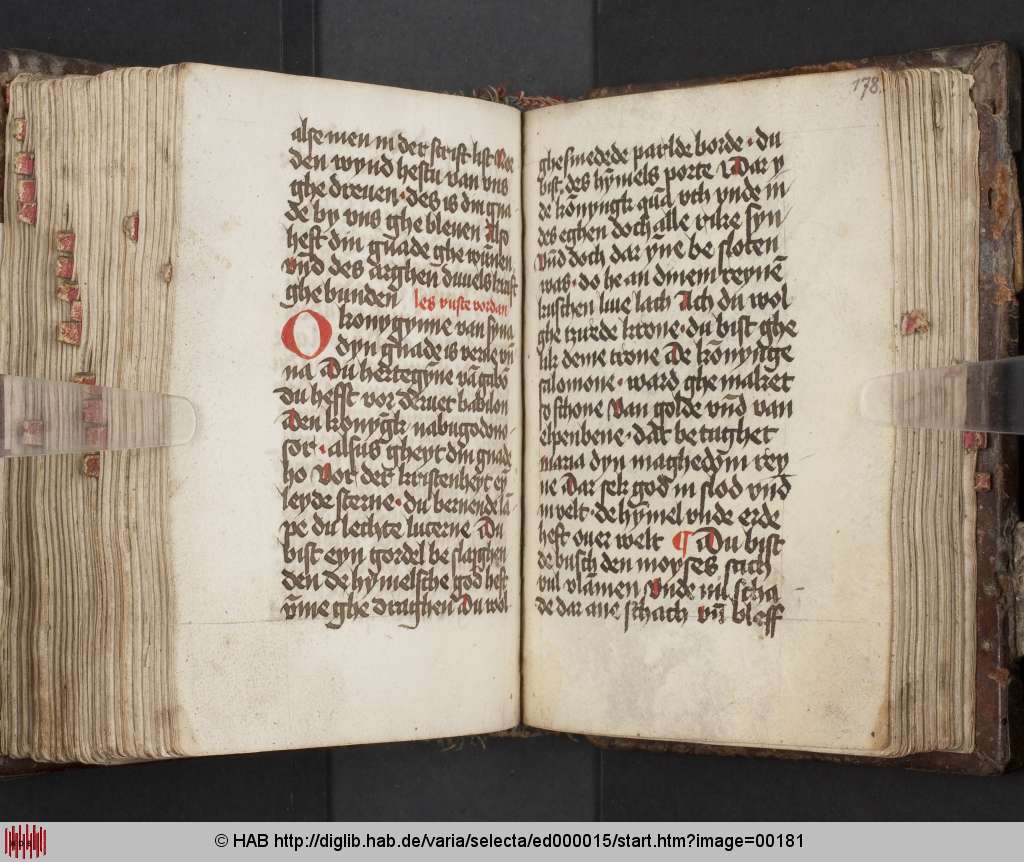 alse men in der scrift list Vor
den wynd hestu van vns
ghe dreuen · des is din gna
de by vns ghe bleuen Also
heft din gnade ghe wūnen
vnd des arghen duuels kraft
ghe bunden les vuste vordan
O konygynne van syna
dyn gnade is verne vn
na Du hertegynne vā gabō
du hefft vor deruet babilon
Den konyngk nabugodono
sor · alsus gheyt din gnade
ho Vor der kristenheyt eyn
leyde sterne · du bernende lā
pe du lechte lucerne Du
bist eyn gordel be slaghen
den de hymelsche god heft
vme ghe draghen Du wol
178.
ghesmedede parlde borde · du
bist des hymels porte Dar y
de konyngk quā vth vnde in
des eghen doch alle vure syn
vnd doch dar yne be sloten
was · do he an dinem reynē
kuschen liue lach Ach du wol
ghe tzirede krone · du bist ghe
lik deme trone De konyngge
salomone · ward ghe maket
so schone Van golde vnd van
elpenbene · dat be tughet
maria dyn maghedom rey
ne Dar sek god in slod vnd
in velt · de hymel vnde erde
heft ouer welt ¶ Du bist
de busch den moyses sach
vul vlāmen vnde nil scha
de dar ane schach vn bleff
© HAB http://diglib.hab.de/varia/selecta/ed000015/start.htm?image=00181